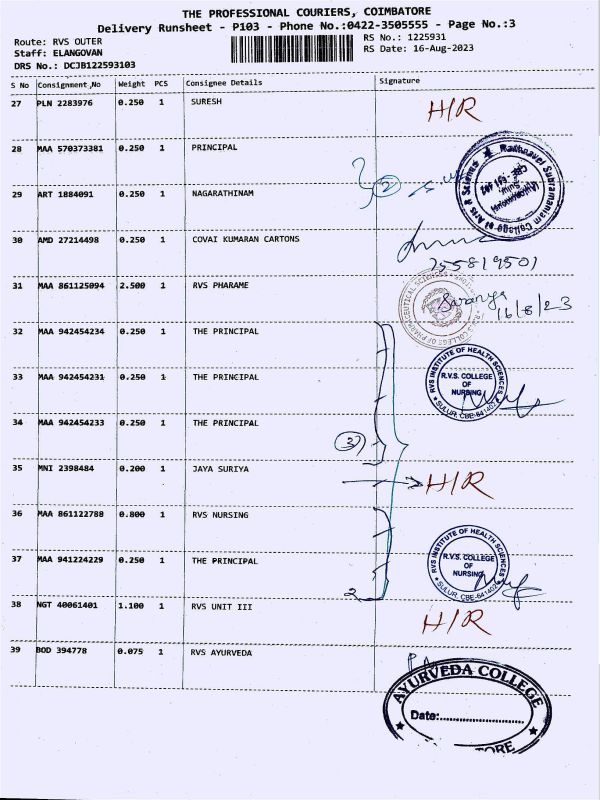 THE PROFESSIONAL COURIERS, COIMBATORE
Delivery Runsheet - P103 - Phone No.:0422-3505555 - Page No.:3
Route: RVS OUTER
Staff: ELANGOVAN
DRS No.: DCJB122593103
RS No.: 1225931
RS Date: 16-Aug-2023
S No Consignment No Weight PCS Consignee Details Signature
27 PLN 2283976 0.250 1 SURESH H/R
28 MAA 570373381 0.250 1 PRINCIPAL
2
Rathnavel Subramaniam College of Arts & Science
29 ART 1884091 0.250 1 NAGARATHINAM
30 AMD 27214498 0.250 1 COVAI KUMARAN CARTONS
755819501
31 MAA 861125094 2.500 1 RVS PHARAME
Saranya
16/8/23
R.V.S. COLLEGE OF PHARMACEUTICAL SCIENCES
32 MAA 942454234 0.250 1 THE PRINCIPAL
33 MAA 942454231 0.250 1 THE PRINCIPAL
RVS INSTITUTE OF HEALTH SCIENCES
R.V.S. COLLEGE
OF
NURSING
SULUR, CBE-641402
34 MAA 942454233 0.250 1 THE PRINCIPAL
3
35 MNI 2398484 0.200 1 JAYA SURIYA H/R
36 MAA 861122788 0.800 1 RVS NURSING
37 MAA 941224229 0.250 1 THE PRINCIPAL
RVS INSTITUTE OF HEALTH SCIENCES
R.V.S. COLLEGE
OF
NURSING
SULUR, CBE-641402
2
38 NGT 40061401 1.100 1 RVS UNIT III H/R
39 BOD 394778 0.075 1 RVS AYURVEDA
AYURVEDA COLLEGE
Date: